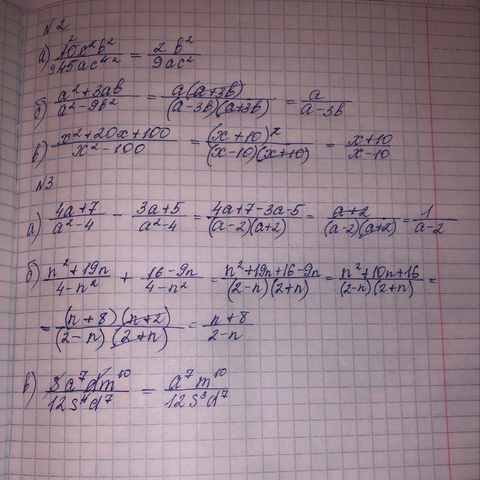 №2
а) 10c²b²/45ac⁴ = 2b²/9ac²
б) a²+3ab/a²-9b² = a(a+3b)/(a-3b)(a+3b) = a/a-3b
в) x²+20x+100/x²-100 = (x+10)²/(x-10)(x+10) = x+10/x-10
№3
а) 4a+7/a²-4 - 3a+5/a²-4 = 4a+7-3a-5/(a-2)(a+2) = a+2/(a-2)(a+2) = 1/a-2
б) n²+19n/4-n² + 16-9n/4-n² = n²+19n+16-9n/(2-n)(2+n) = n²+10n+16/(2-n)(2+n) =
= (n+8)(n+2)/(2-n)(2+n) = n+8/2-n
в) a⁷dm¹⁰/12s⁴d⁷ = a⁷m¹⁰/12s³d⁷